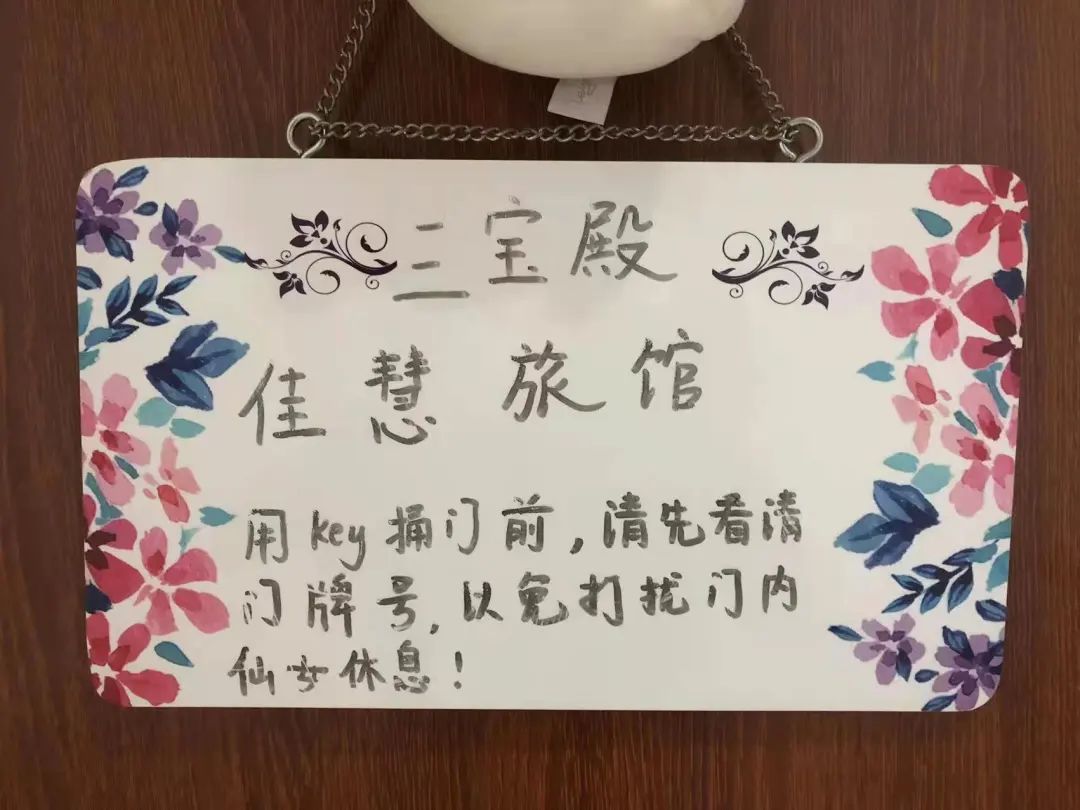 三宝殿
佳慧旅馆
用key捅门前,请先看清
门牌号,以免打扰门内
仙女休息!